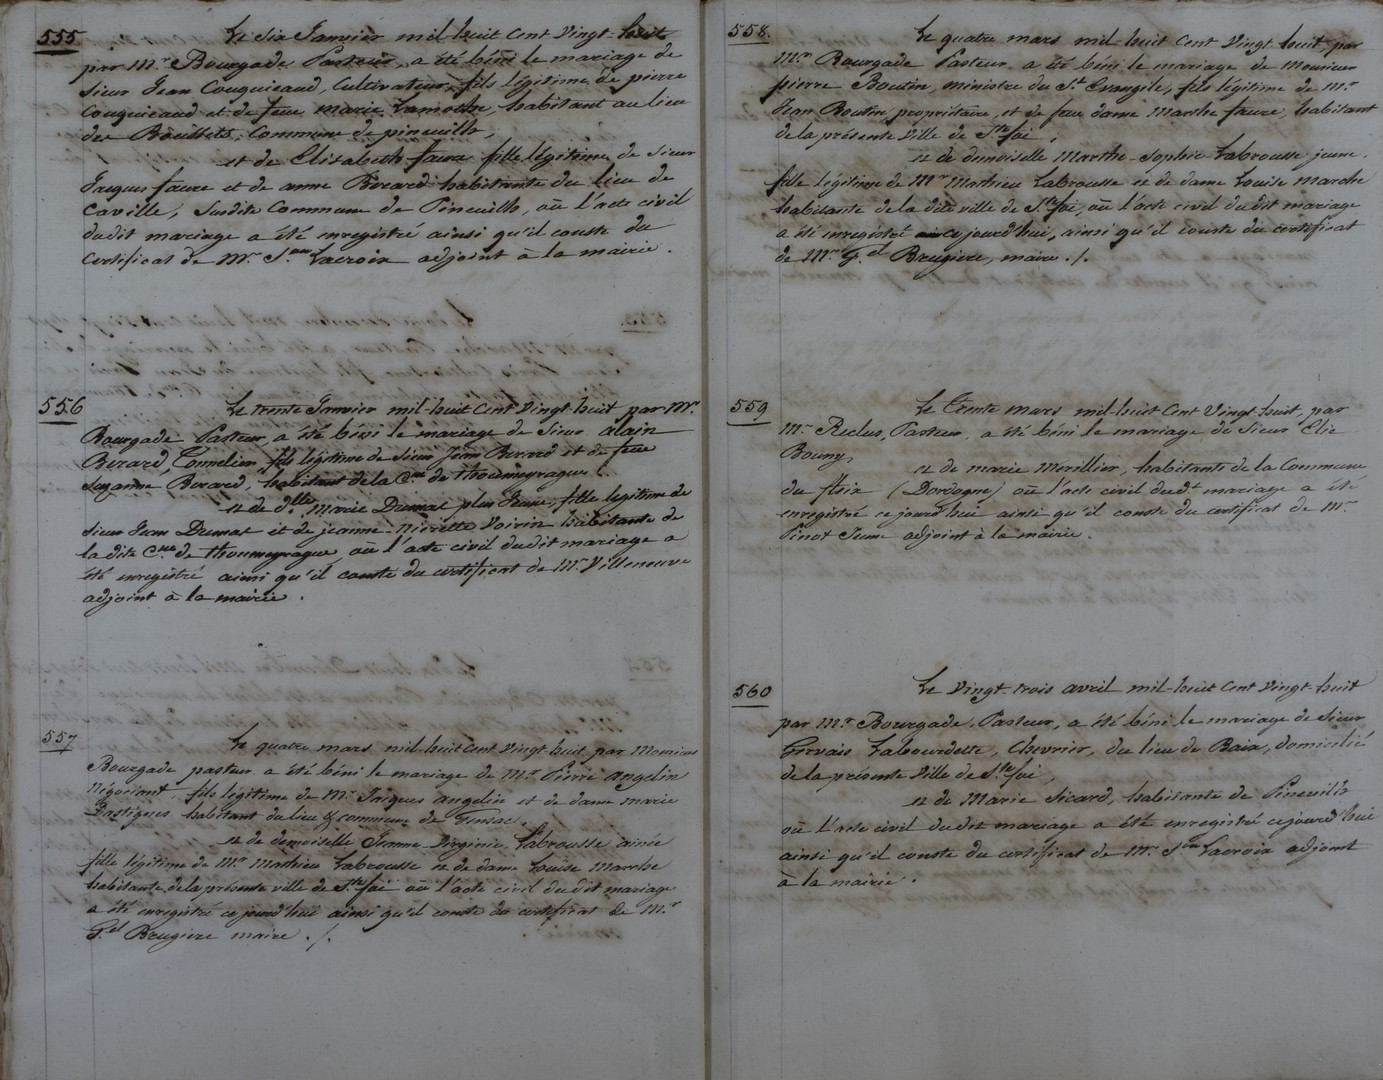 555
Le six Janvier mil huit Cent Vingt-huit
par Mr. Bourgade, Pasteur, a été béni le mariage de
Sieur Jean Couquieaud, Cultivateur, fils légitime de pierre
Couquieaud et de feue marie Lamothe, habitant au lieu
des Commune de pineuilh,
et de Elisabeth faure fille légitime de Sieur
Jacques faure et de anne Berard habitante du lieu de
Caville, Susdite Commune de Pineuilh, où l'acte civil
dudit mariage a été enregistré ainsi qu'il conste du
Certificat de Mr. Lacroix adjoint à la mairie.
556
Le trente Janvier mil-huit Cent Vingt huit par Mr.
Bourgade Pasteur, a été béni le mariage de Sieur alain
Berard, Tonnelier, fils légitime de Sieur Jean Berard et de feue
Suzanne Berard, habitant de la Cne de thoumeyragues
et de dlle. Marie Dumas plus Jeune, fille légitime de
Sieur Jean Dumas et de jeanne-pierrette Voirin habitante de
la dite Cne. de thoumeyragues où l'acte civil dudit mariage a
été enregistré ainsi qu'il conste du certificat de Mr. Villeneuve
adjoint à la mairie.
557
Le quatre mars mil huit Cent Vingt huit par Monsieur
Bourgade pasteur a été béni le mariage de Mr. Pierre angelin
Négociant, fils légitime de Mr. Jacques angelin et de dame marie
habitant du lieu & commune de
et de demoiselle Jeanne Virginie Labrousse ainée
fille légitime de Mr. Mathieu Labrousse et de dame Louise Marche
habitante de la présente ville de Ste. foi où l'acte civil du dit mariage
a été enregistré ce jourd'hui ainsi qu'il conste du certificat de M.r
G.el Brugiere maire ./.
558.
Le quatre mars mil-huit Cent Vingt huit par
Mr. Bourgade Pasteur a été béni le mariage de Monsieur
pierre Boutin, ministre du St. Evangile, fils légitime de Mr.
Jean Boutin propriétaire, et de feue dame Marthe faure, habitant
de la présente Ville de Ste foi;
et de demoiselle Marthe-Sophie Labrousse jeune,
fille légitime de Mr Mathieu Labrousse et de dame Louise Marche
habitante de la dite ville de Ste foi, où l'acte civil du dit mariage
a été enregistré ce jourd'hui, ainsi qu'il conste du certificat
de Mr. G.el Brugiere, maire ./.
559
Le Trente mars mil-huit Cent Vingt huit, par
Mr. Reclus, Pasteur, a été béni le mariage de Sieur Elie
Bouny,
et de marie Merillier, habitante de la Commune
du fleix (Dordogne) où l'acte civil dudt mariage a été
enregistré ce jourd'hui ainsi qu'il conste du certificat de Mr.
Pinot Jeune adjoint à la mairie.
560
Le Vingt-trois avril mil-huit Cent Vingt-huit
par Mr. Bourgade, Pasteur, a été béni le mariage de Sieur
Gervais Labourdette, Chevrier, du lieu de Baix, domicilié
de la présente Ville de Ste foi,
et de Marie Sicard, habitante de Pineuilh
où l'acte civil du dit mariage a été enregistré ce jourd'hui
ainsi qu'il conste du certificat de Mr. Lacroix adjoint
à la mairie.